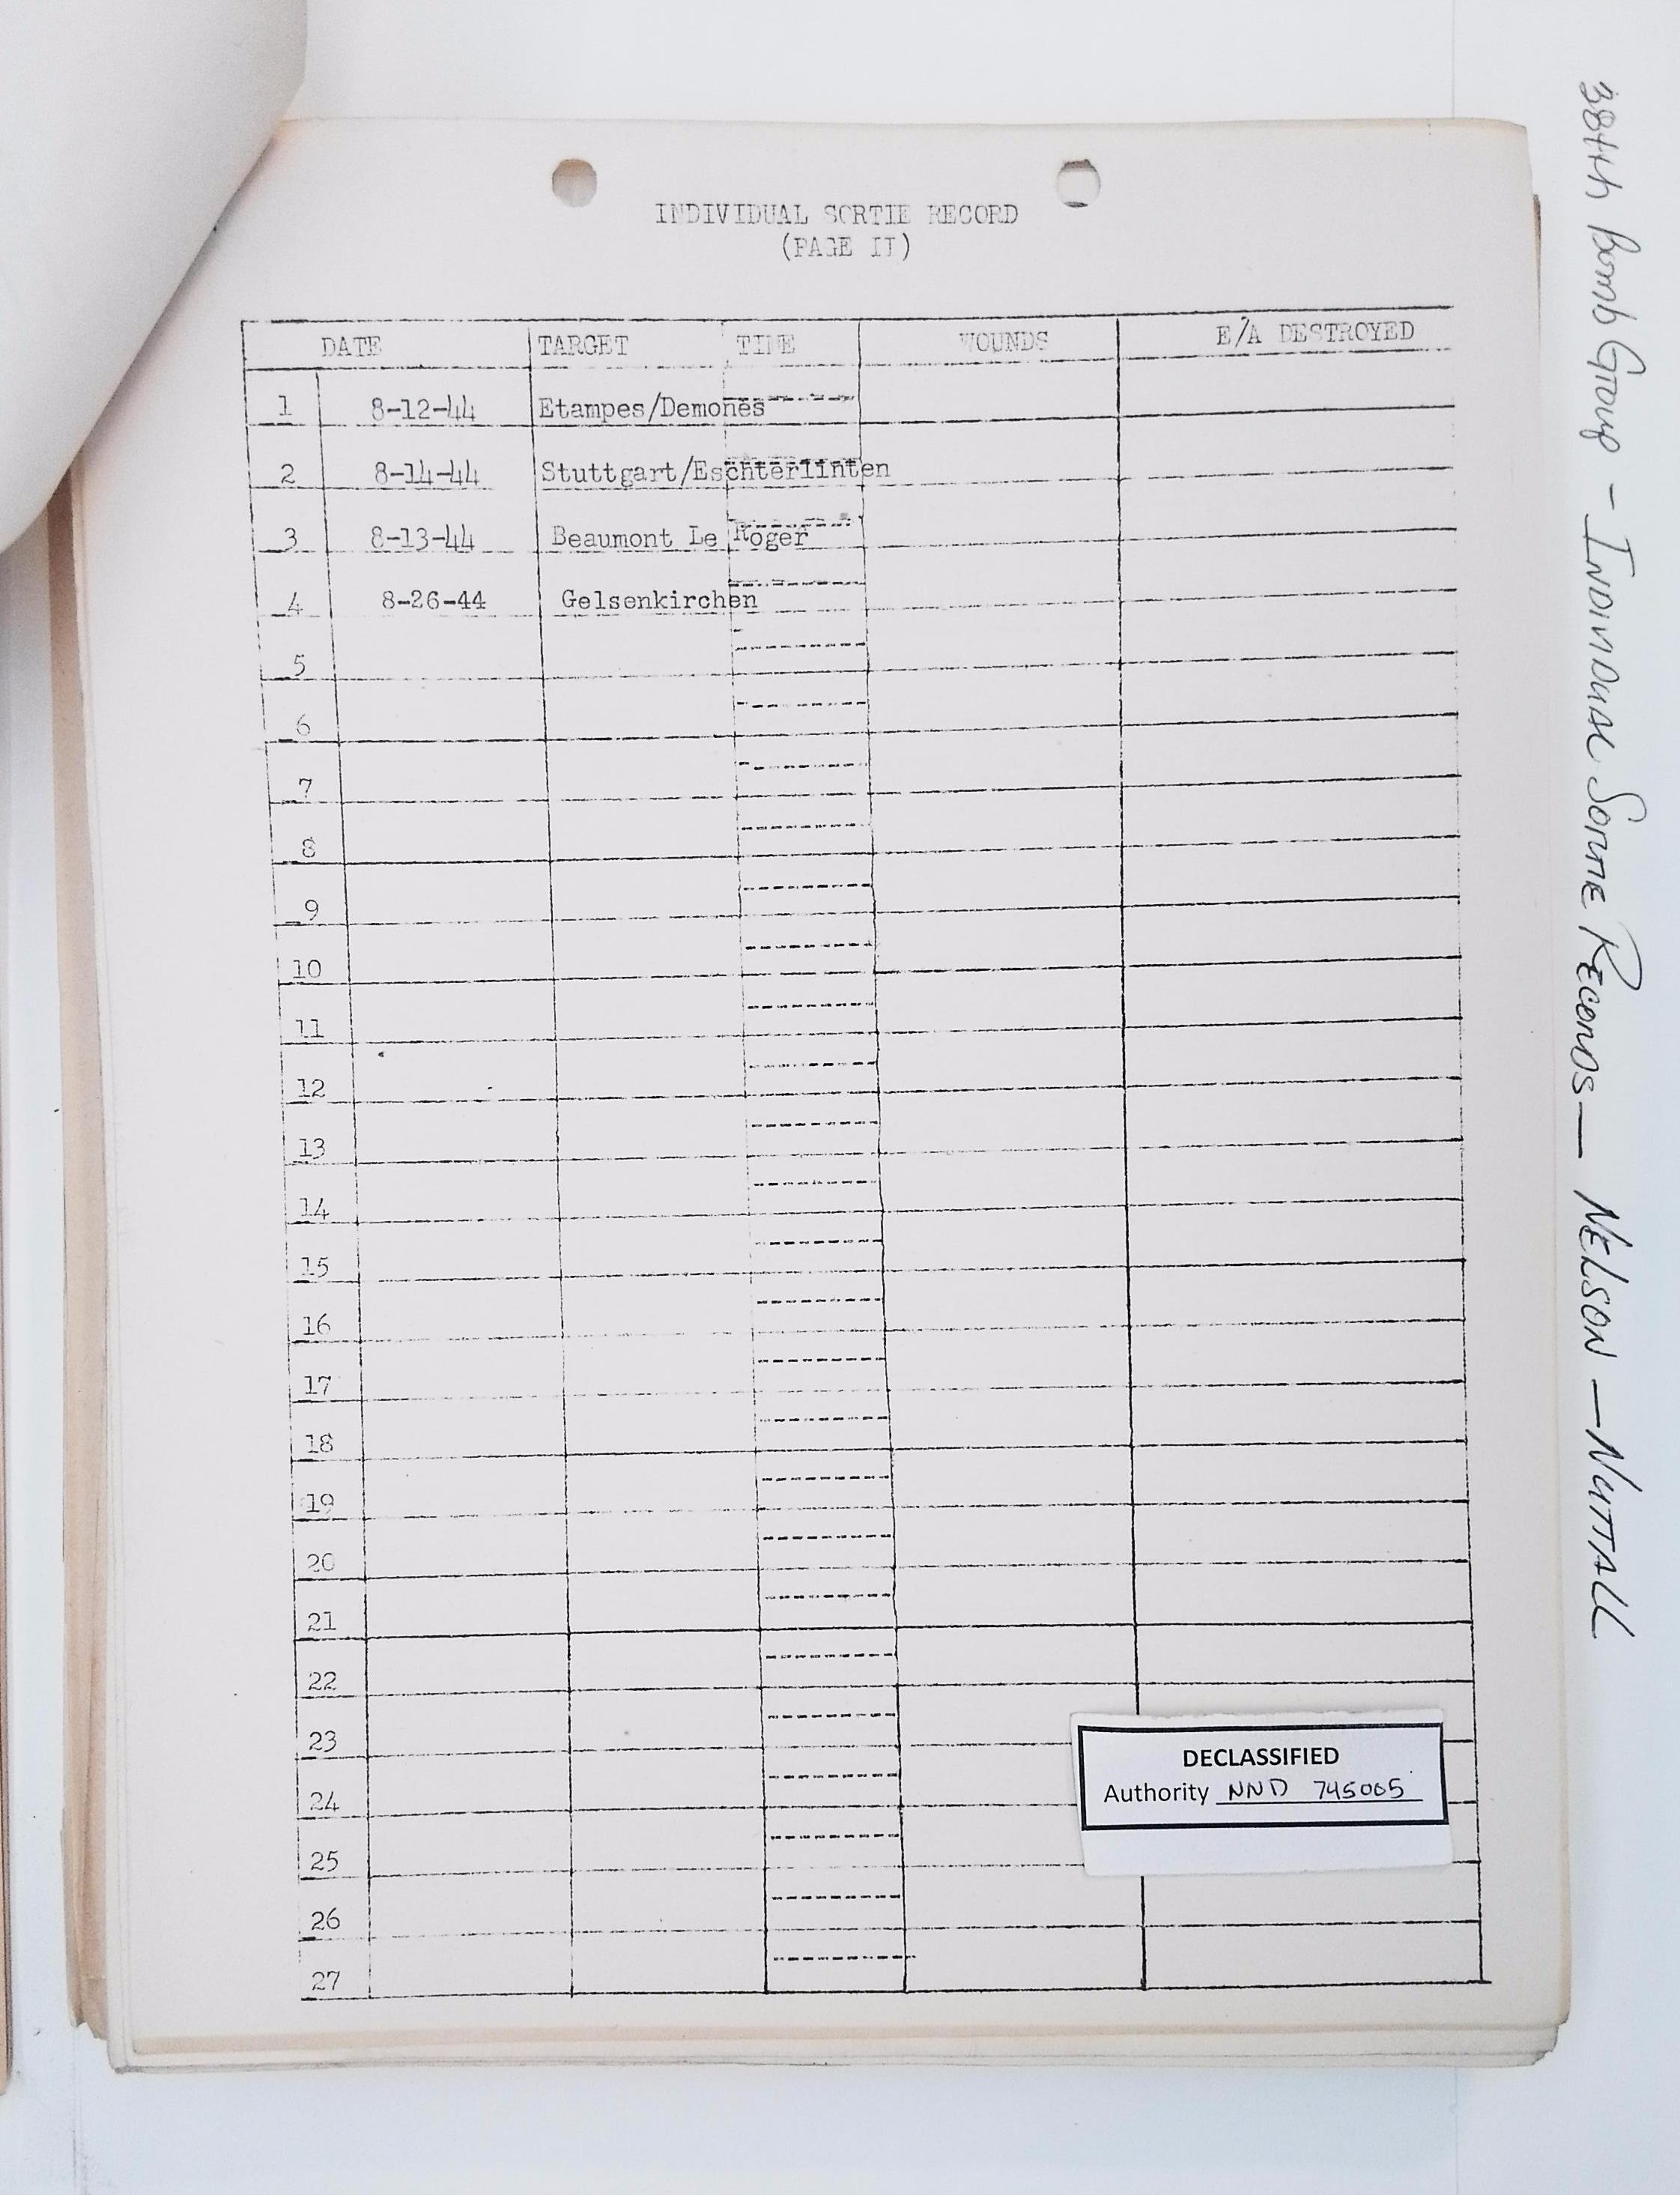 INDIVIDUAL SORTIE RECORD
(PAGE II)
DATE TARGET TIME WOUNDS E/A DESTROYED
1 8-12-44 Etampes/Demones
2 8-14-44 Stuttgart/Eschterlinten
3 8-13-44 Beaumont Le Roger
4 8-26-44 Gelsenkirchen
5
6
7
8
9
10
11
12
13
14
15
16
17
18
19
20
21
22
23
24
25
26
27
DECLASSIFIED
Authority NND 745005
38th Bomb Group - Individual Sortie Records - Nelson - Nuttall